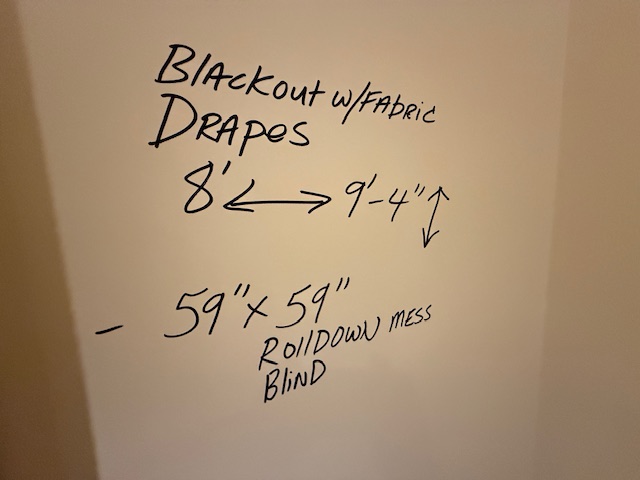 Blackout w/Fabric
Drapes
8' ↔ 9'-4" ↕
- 59" x 59"
Rolldown mess
Blind